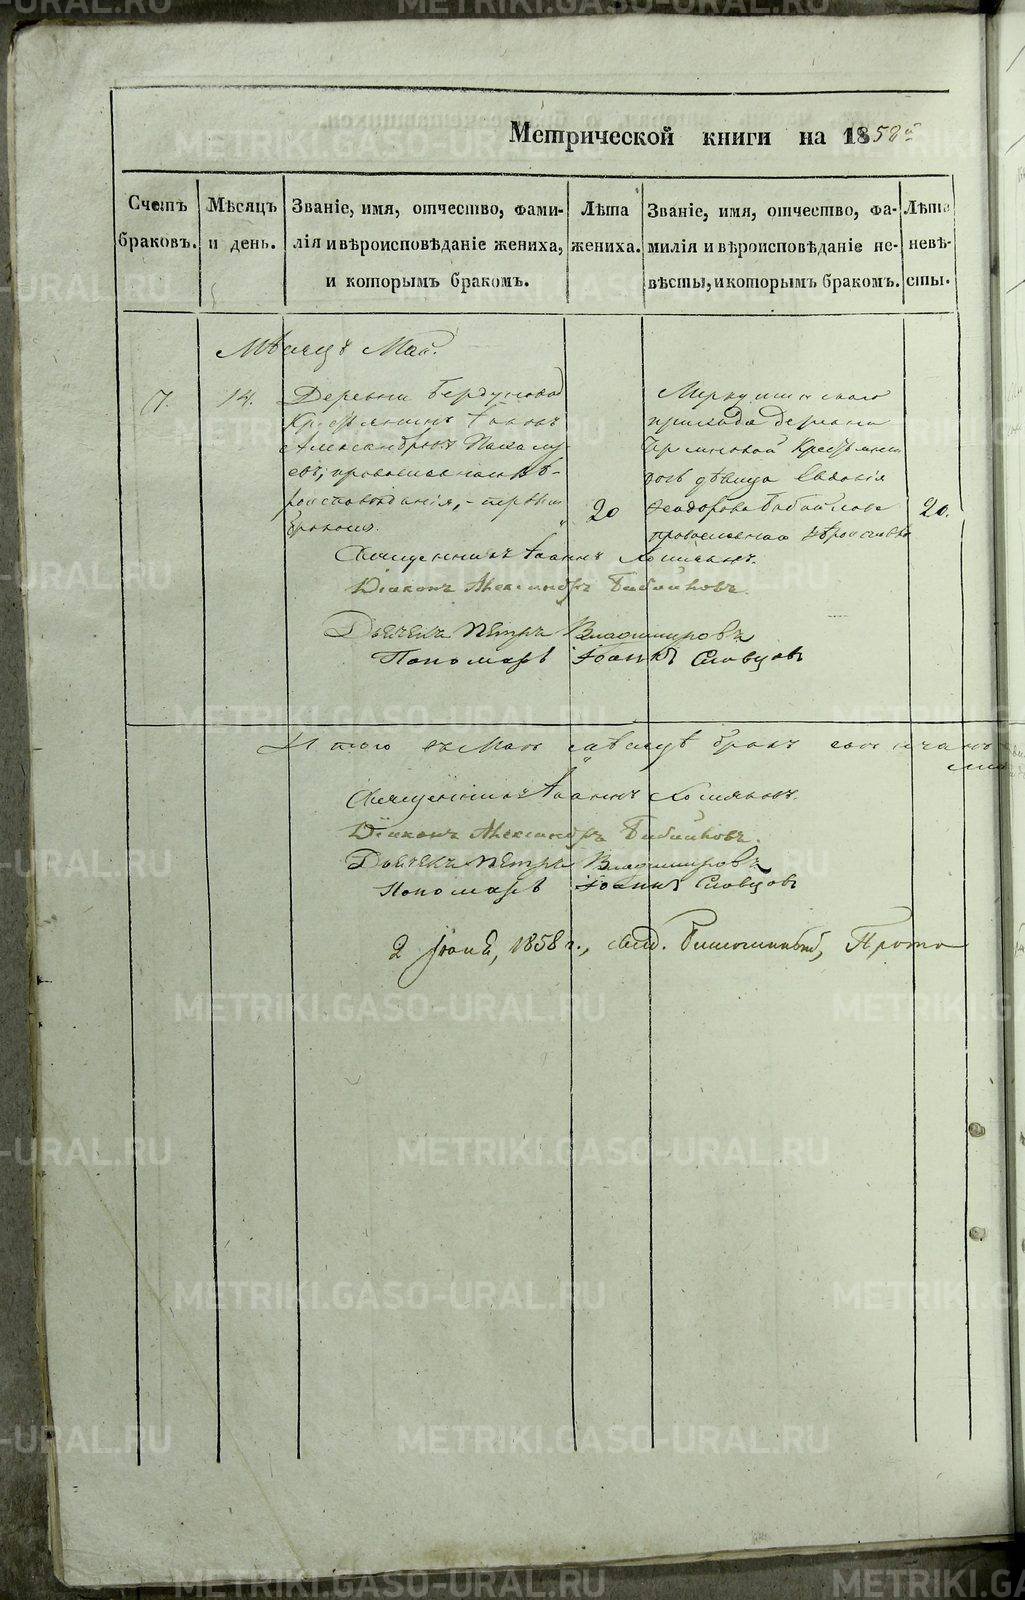 METRIKI.GASO-URAL.RU
Метрической книги на 1858й
Счетъ браковъ.
Мѣсяцъ и день.
Званіе, имя, отчество, фамилія и вѣроисповѣданіе жениха, и которымъ бракомъ.
Лѣта жениха.
Званіе, имя, отчество, фамилія и вѣроисповѣданіе невѣсты, и которымъ бракомъ.
Лѣта невѣсты.
Мѣсяцъ Май.
7.
14.
Деревни
Крестьянинъ Іоаннъ
Александровъ
православнаго вѣ-
роисповѣданія, первымъ
бракомъ.
20
прихода деревни
Крестьянск
дѣвица Евдокія
Ѳеодорова
православнаго вѣроисповѣд
20.
Священникъ Іоаннъ Хомяковъ.
Діаконъ Александръ Бибиковъ.
Дьячекъ Петръ Владимировъ
Пономарь Іоаннъ Словцовъ
Итого въ Маѣ бракъ
Священникъ Іоаннъ Хомяковъ.
Діаконъ Александръ Бибиковъ.
Дьячекъ Петръ Владимировъ
Пономарь Іоаннъ Словцовъ
2 Іюня, 1858 г., Прото